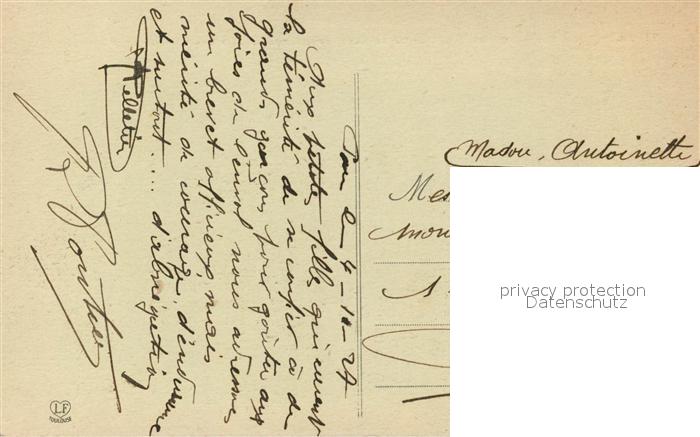 Pau le 4-10-27
Aux petites filles qui eurent
la témérité de se confier à de
grands garçons pour goûter aux
joies de l'envol nous adressons
un brevet officieux mais
mérité de courage, d'endurance
et surtout ... d'abnégation
Pelletier
Madou, Antoinette
Mes
1
privacy protection
Datenschutz
LF
TOULOUSE